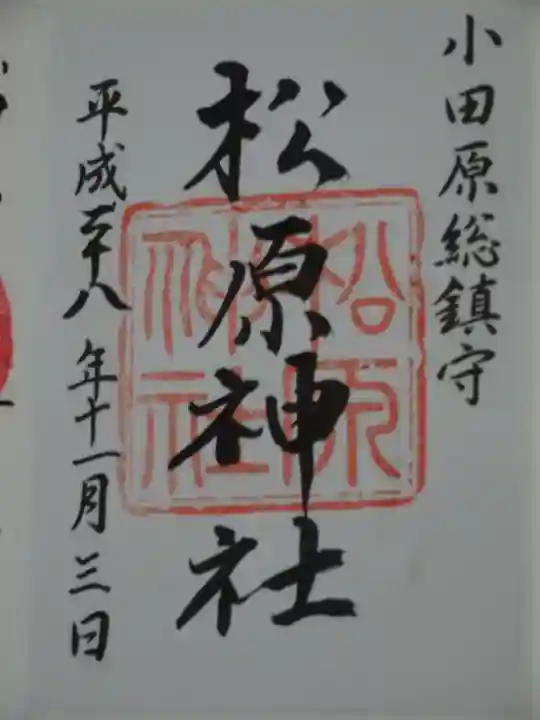 小田原総鎮守
松原神社
松原神社
平成二十八年十一月三日